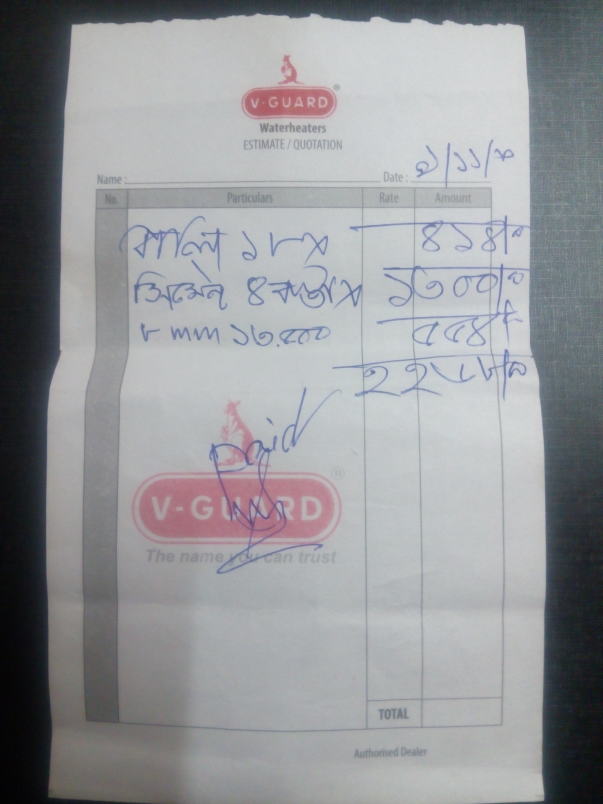 V-GUARD ®
Waterheaters
ESTIMATE / QUOTATION
Name : Date :
No. Particulars Rate Amount
বালি ১৮ ৪১৪/
৪ ১৩০০/
৮ mm ১৩.৫০০ ৫৫৪
২২৬৮/
Paid
V-GUARD ®
The name you can trust
TOTAL
Authorised Dealer